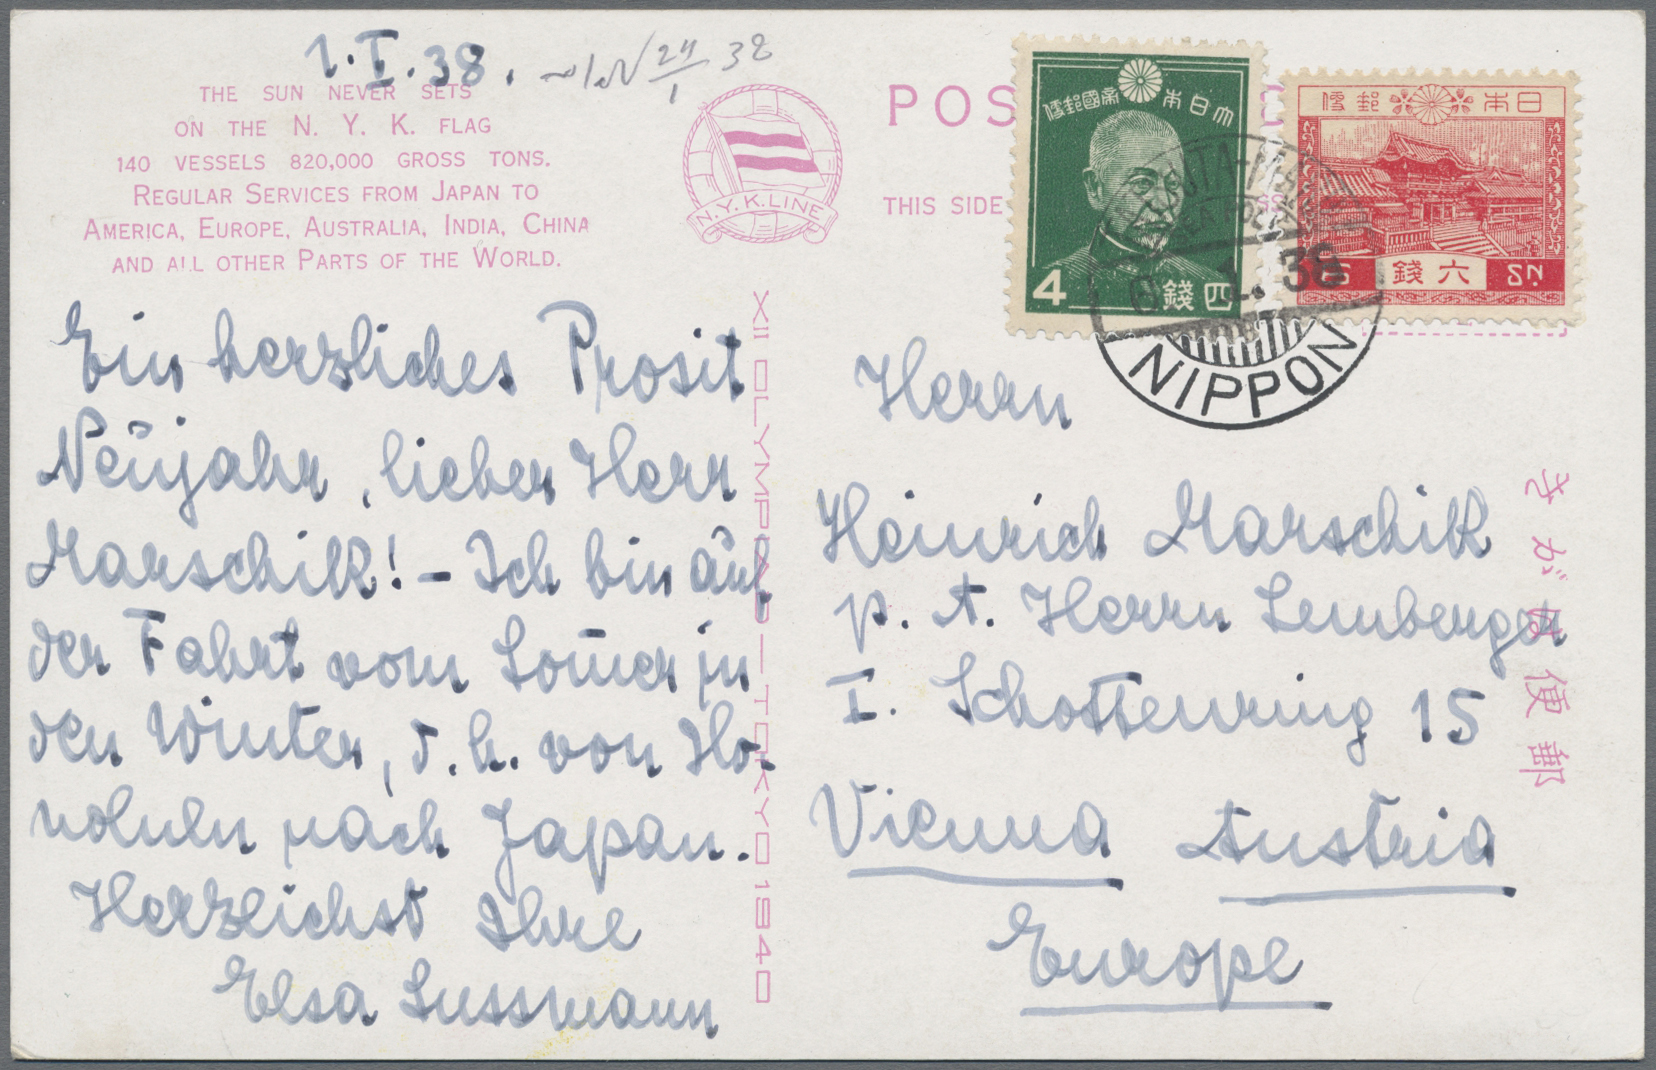 1.I.38.
24/1 38
THE SUN NEVER SETS
ON THE N. Y. K. FLAG
140 VESSELS 820,000 GROSS TONS.
REGULAR SERVICES FROM JAPAN TO
AMERICA, EUROPE, AUSTRALIA, INDIA, CHINA
AND ALL OTHER PARTS OF THE WORLD.
N.Y.K.LINE
POS
THIS SIDE
大日本帝國郵便
4
四錢
日本郵便
六錢
SN.
6.1.38
NIPPON
XII OLYMPIAD — TOKYO 1940
Ein herzliches Prosit
Neujahr, lieber Herr
Marschik! – Ich bin auf
der Fahrt vom Som̄er in
den Winter, d.h. von Ho-
nolulu nach Japan.
Herzlichst Ihre
Elsa Sussmann
Herrn
Heinrich Marschik
p. A. Herrn Lemberger
I. Schottenring 15
Vienna Austria
Europe
きがは便郵